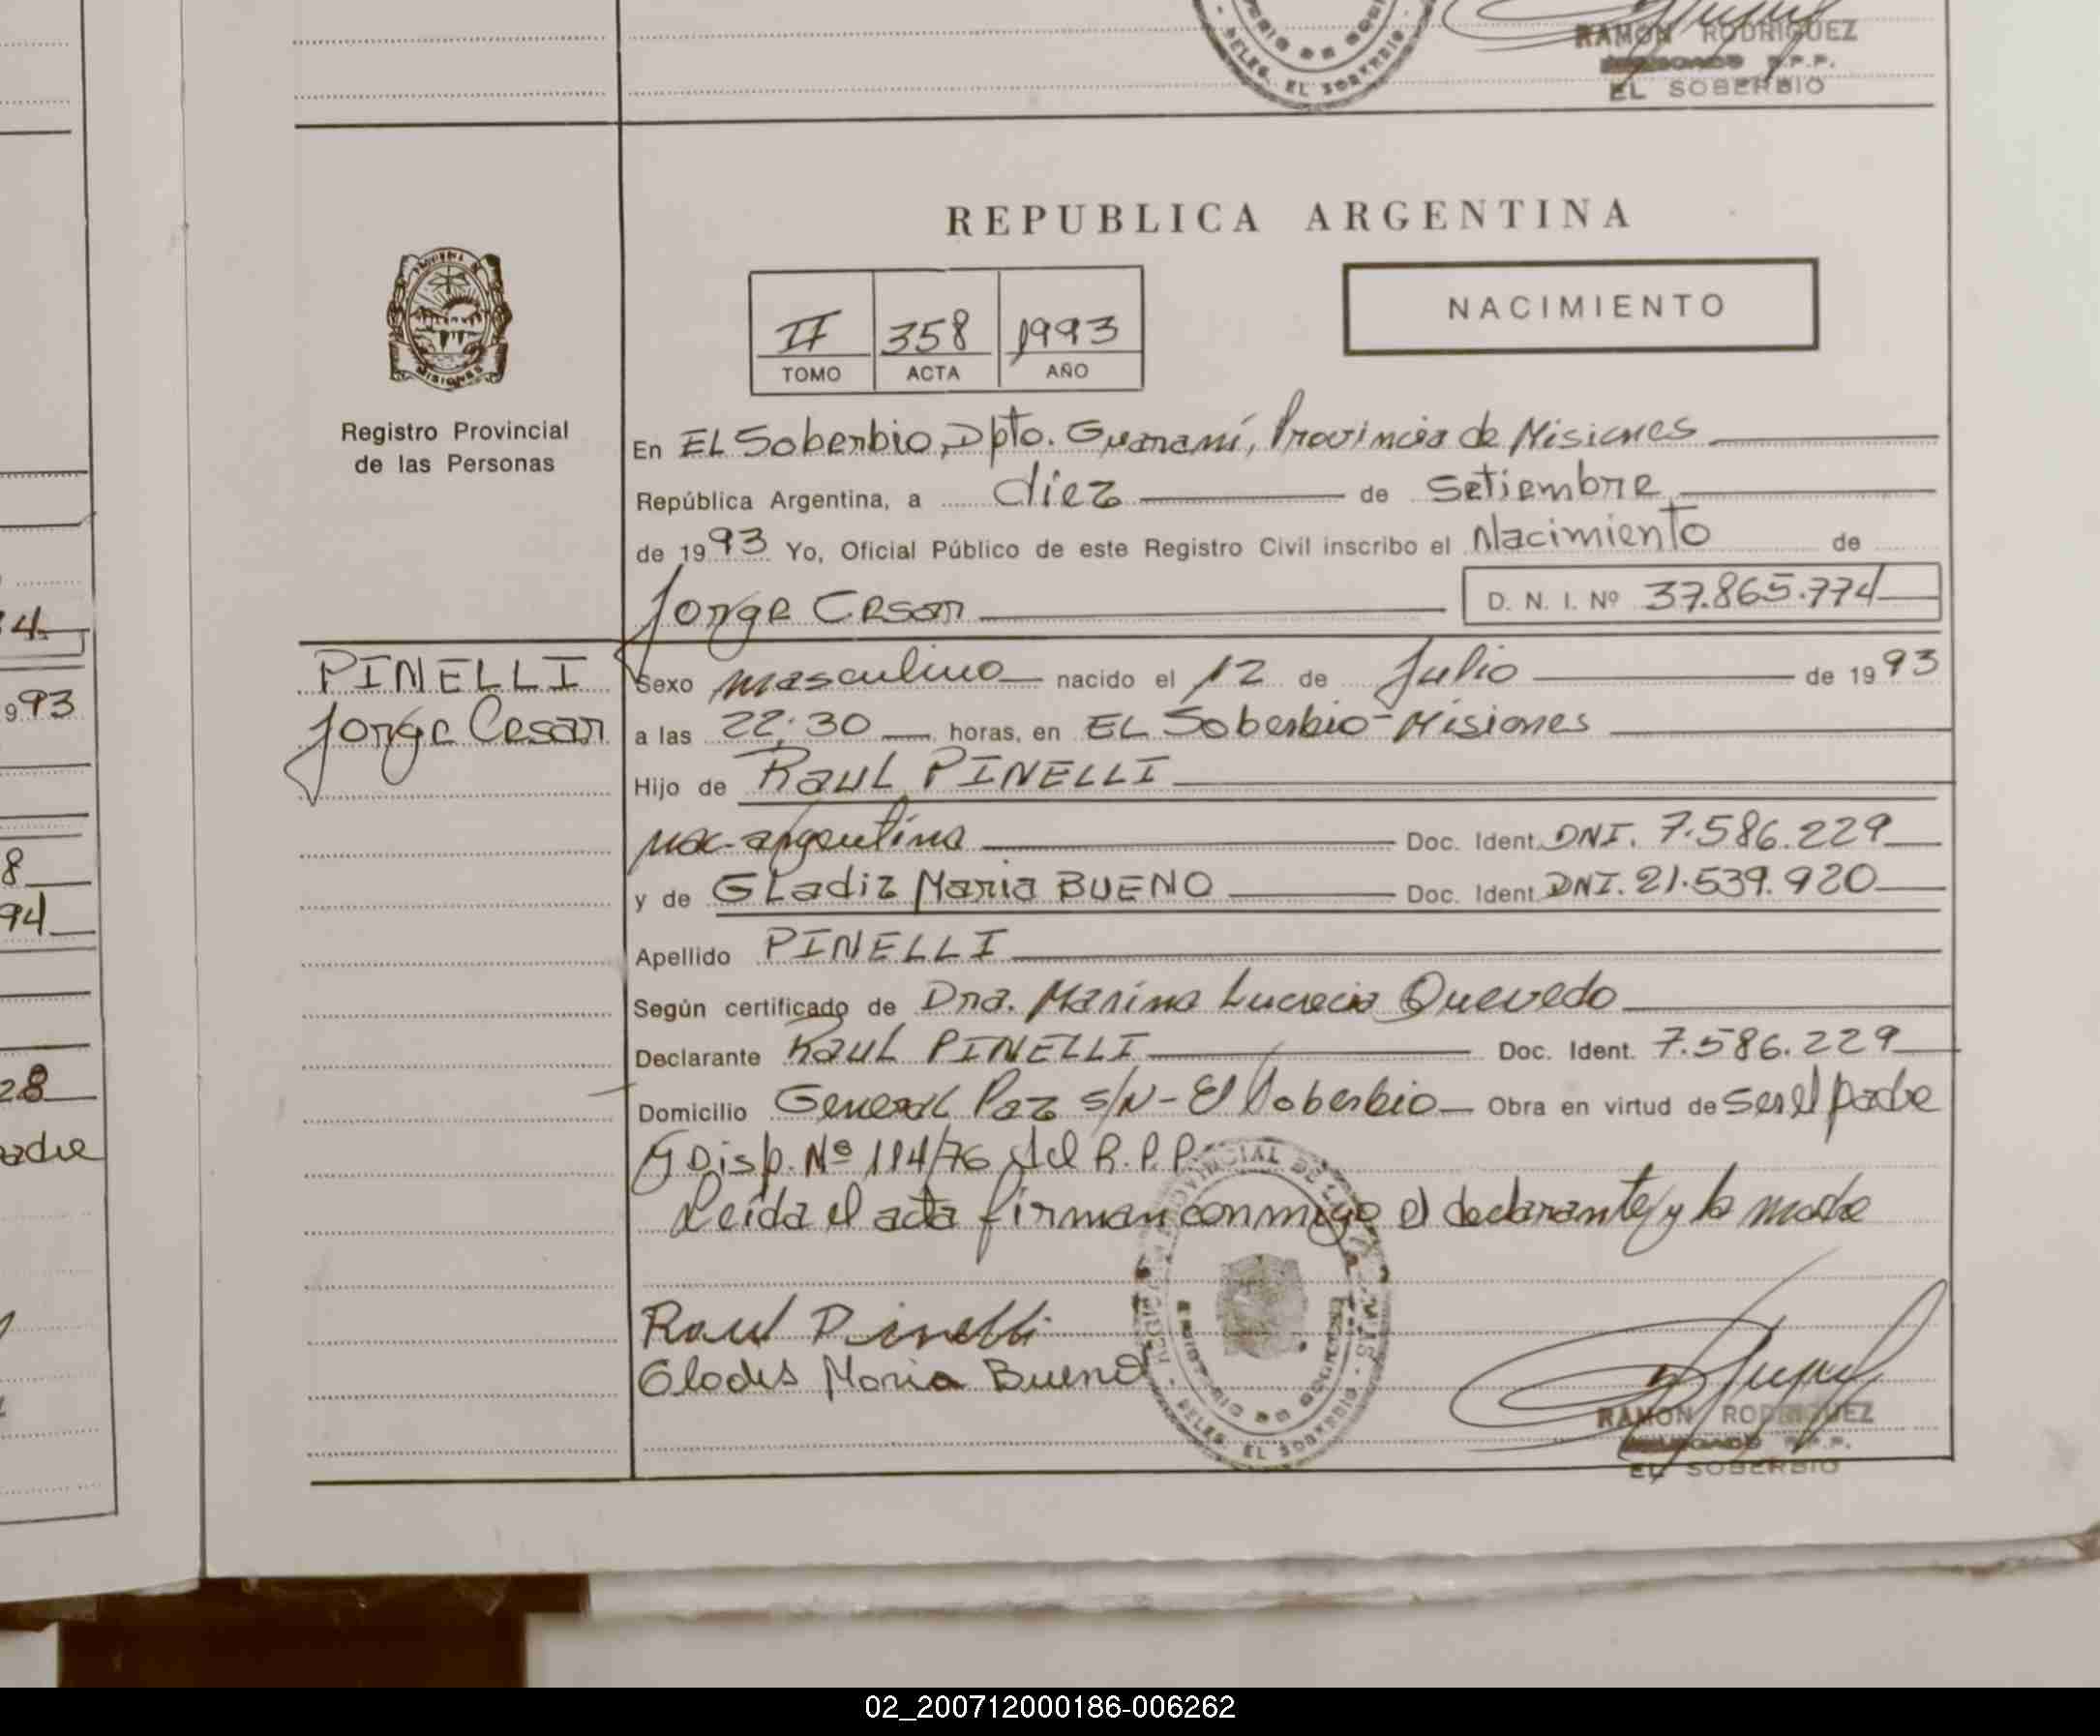 RAMON RODRIGUEZ
R.P.P.
EL SOBERBIO
DELEG. EL SOBERBIO
REPUBLICA ARGENTINA
NACIMIENTO
II 358 1993
TOMO ACTA AÑO
PROVINCIA DE
MISIONES
Registro Provincial
de las Personas
En EL Soberbio, Dpto. Guaraní, Provincia de Misiones
República Argentina, a diez de Setiembre
de 1993 Yo, Oficial Público de este Registro Civil inscribo el Nacimiento de
Jorge Cesar D. N. I. Nº 37.865.774
PINELLI
Jorge Cesar
Sexo masculino nacido el 12 de Julio de 1993
a las 22:30 horas, en EL Soberbio-Misiones
Hijo de Raul PINELLI
nac. argentina Doc. Ident. DNI. 7.586.229
y de GLadiz Maria BUENO Doc. Ident. DNI. 21.539.920
Apellido PINELLI
Según certificado de Dra. Marina Lucrecia Quevedo
Declarante Raul PINELLI Doc. Ident. 7.586.229
Domicilio General Paz s/N - El Soberbio Obra en virtud de ser el padre
y Disp. Nº 114/76 del R.P.P.
Leída el acta firman conmigo el declarante y la madre
Raul Pinelli
Gladis Maria Bueno
DELEG. EL SOBERBIO
RAMON RODRIGUEZ
R.P.P.
EL SOBERBIO
4.
1993
8
94
28
padre
02_200712000186-006262